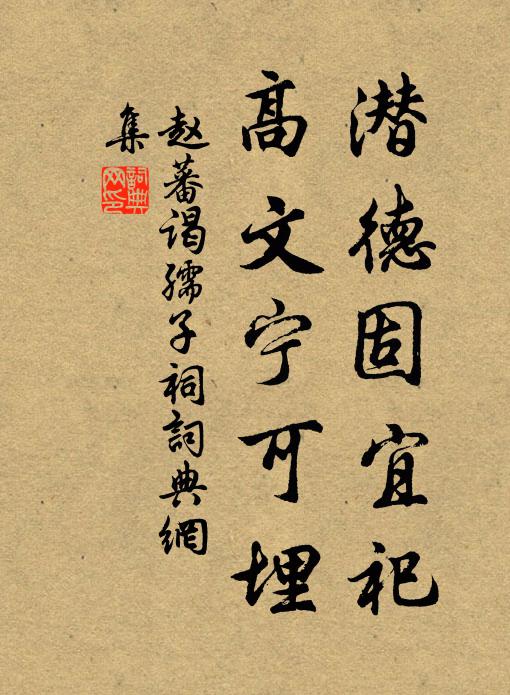 潜德固宜祀
高文宁可埋
赵蕃谒孺子祠詞典網
集
詞典网印